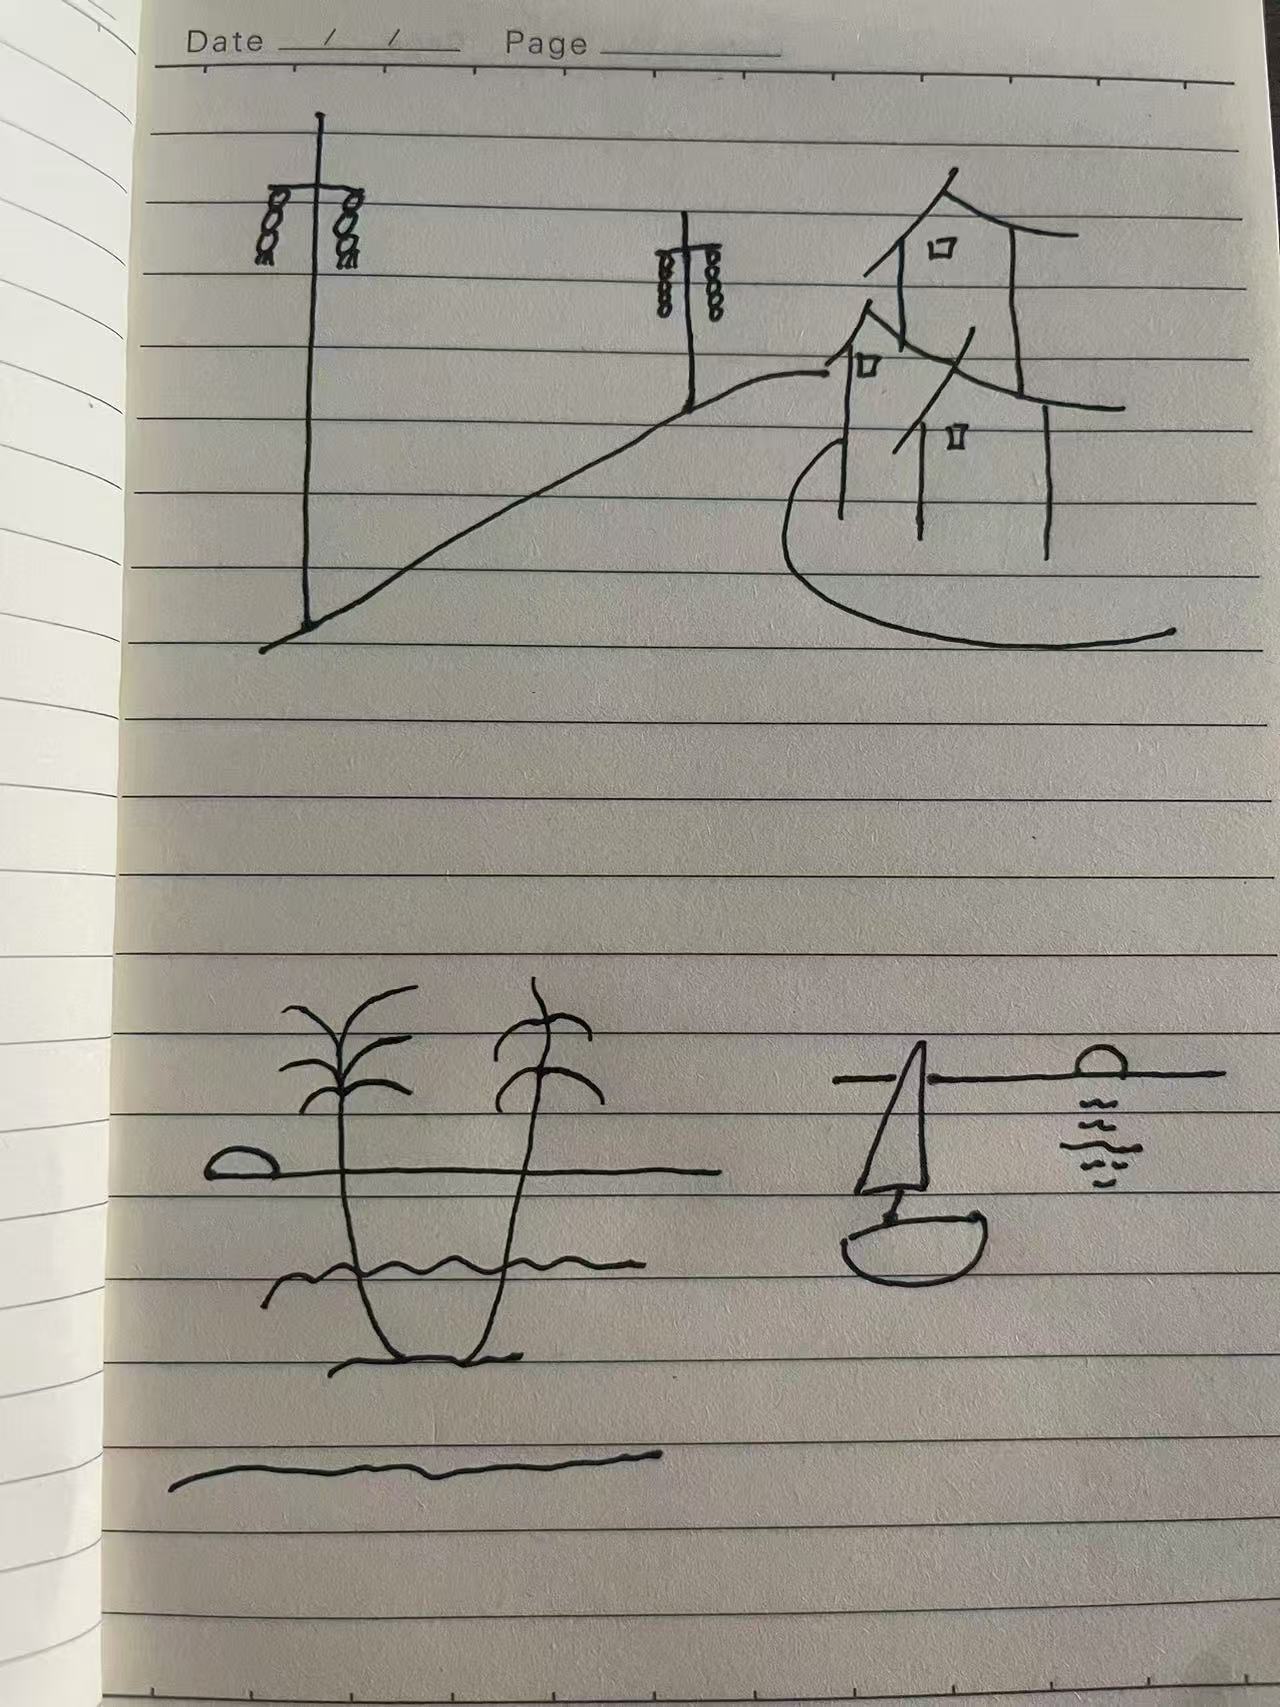 Date / / Page